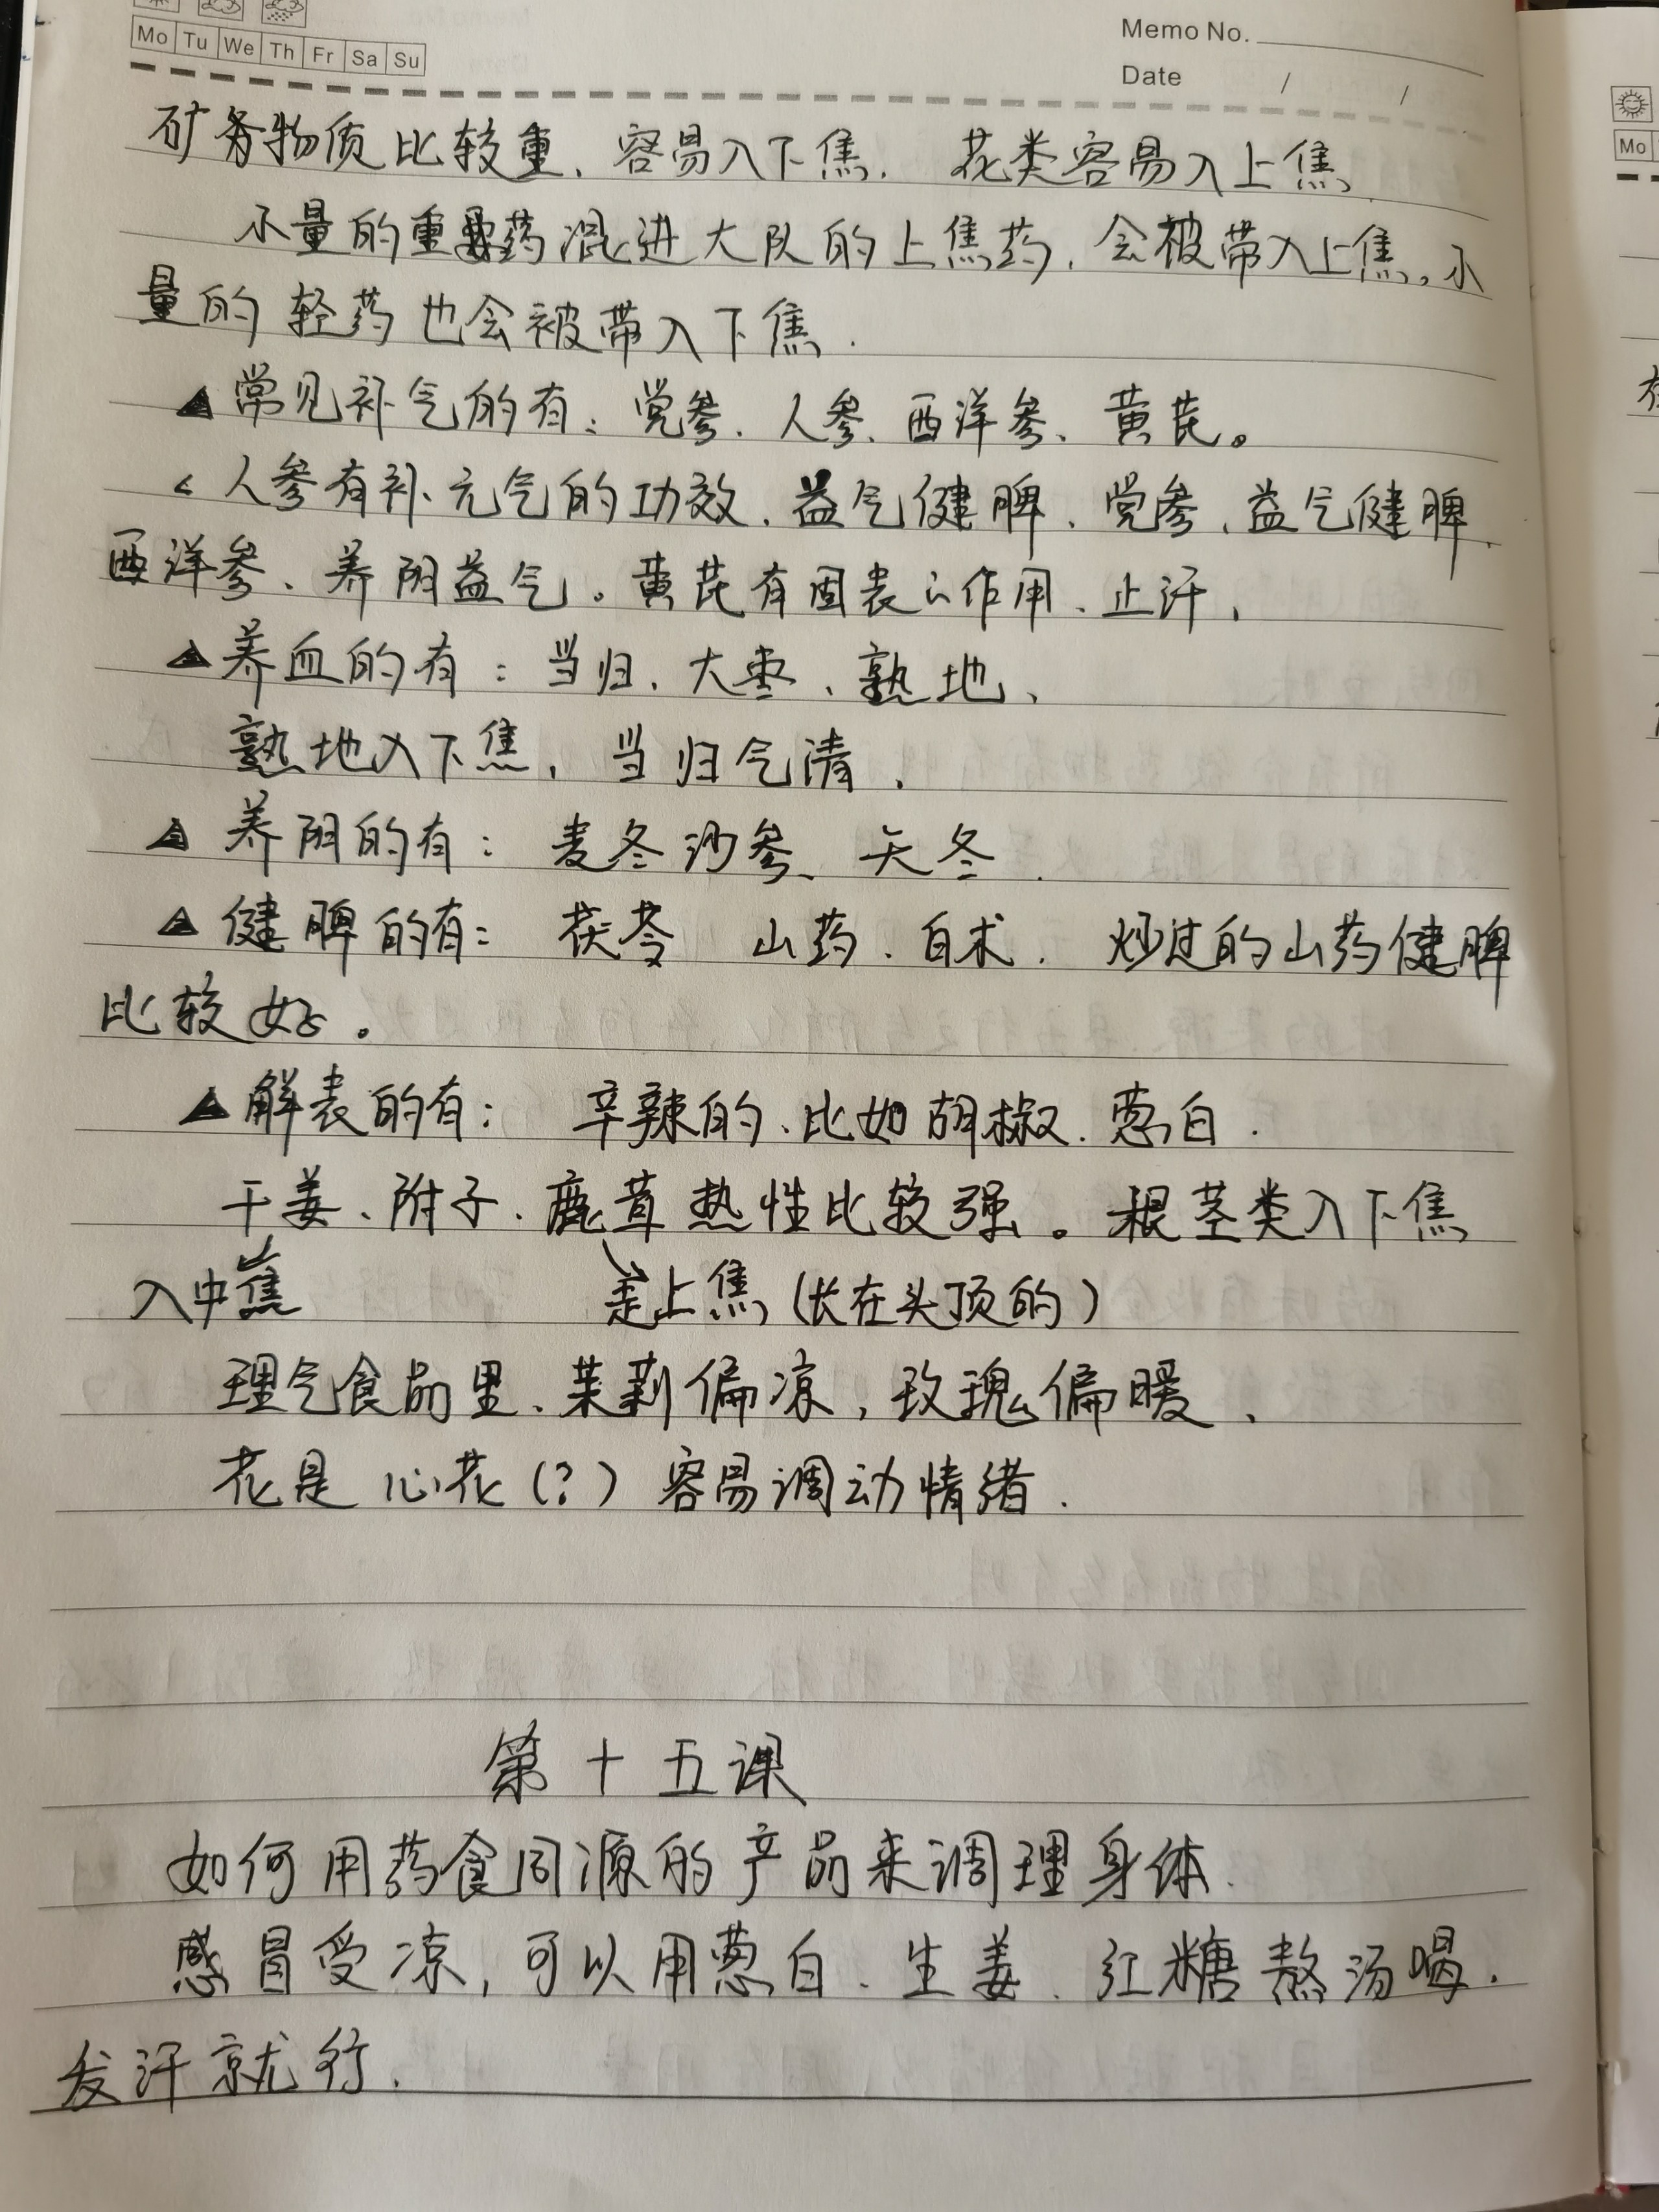 Mo Tu We Th Fr Sa Su
Memo No.
Date / /
矿务物质比较重、容易入下焦. 花类容易入上焦、
小量的重药混进大队的上焦药,会被带入上焦。小
量的轻药也会被带入下焦.
▲常见补气的有:党参、人参、西洋参、黄芪。
人参有补元气的功效、益气健脾、党参、益气健脾、
西洋参、养阴益气。黄芪有固表的作用、止汗,
▲养血的有:当归、大枣、熟地、
熟地入下焦,当归气清.
▲养阴的有:麦冬沙参、天冬.
▲健脾的有:茯苓 山药、白术. 炒过的山药健脾
比较好。
▲解表的有: 辛辣的、比如胡椒.葱白.
干姜、附子、鹿茸热性比较强。根茎类入下焦
入中焦 走上焦(长在头顶的)
理气食品里、茉莉偏凉,玫瑰偏暖、
花是心花(?)容易调动情绪.
第十五课
如何用药食同源的产品来调理身体.
感冒受凉,可以用葱白、生姜、红糖熬汤喝.
发汗就行.
Mo